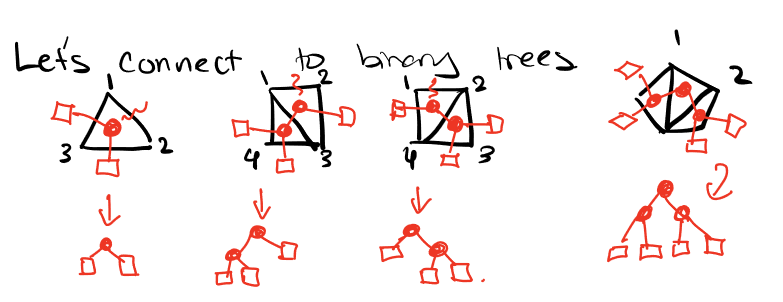 Let's connect to binary trees
1 1 2 1 2 1 2
3 2 4 3 4 3